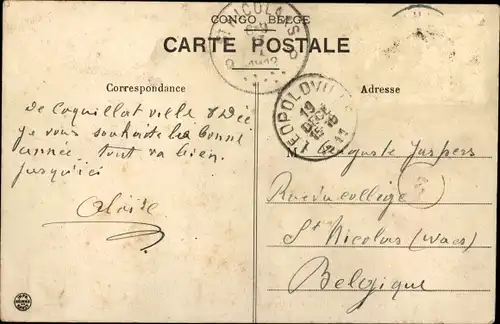 CONGO BELGE
CARTE POSTALE
ST NICOLAS
1912
Correspondance
Adresse
LEOPOLDVILLE
19
DEC
1911
De Coquillatville 8 Déc
Je vous souhaite la bonne
année tout va bien
jusqu'ici
Aloïse
M Auguste Jaspers
Rue du collège
St Nicolas (Waes)
Belgique